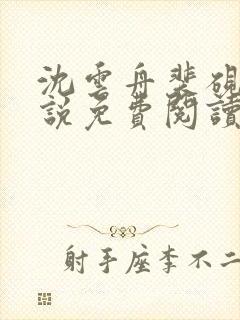 沈雲舟裴硯
說免費閱讀
射手座李不二